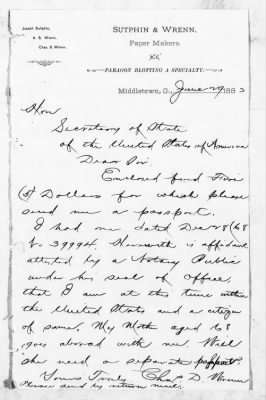 Joseph Sutphin,
A. S. Wrenn,
Chas. D. Wrenn.
SUTPHIN & WRENN,
Paper Makers.
PARAGON BLOTTING A SPECIALTY.
Middletown, O., June 29 1883
Hon
Secretary of State
of the United States of America
Dear Sir
Enclosed find Five
(5) Dollars for which please
send me a passport.
I had one dated Dec 28/68
No. 39994. Herewith is affidavit
attested by a Notary Public
under his seal of office,
that I am at this time within
the United States and a citizen
of same. My Mother aged 68
goes abroad with me. Will
she need a separate passport
Yours Truly Chas. D. Wrenn
Please send by return mail.